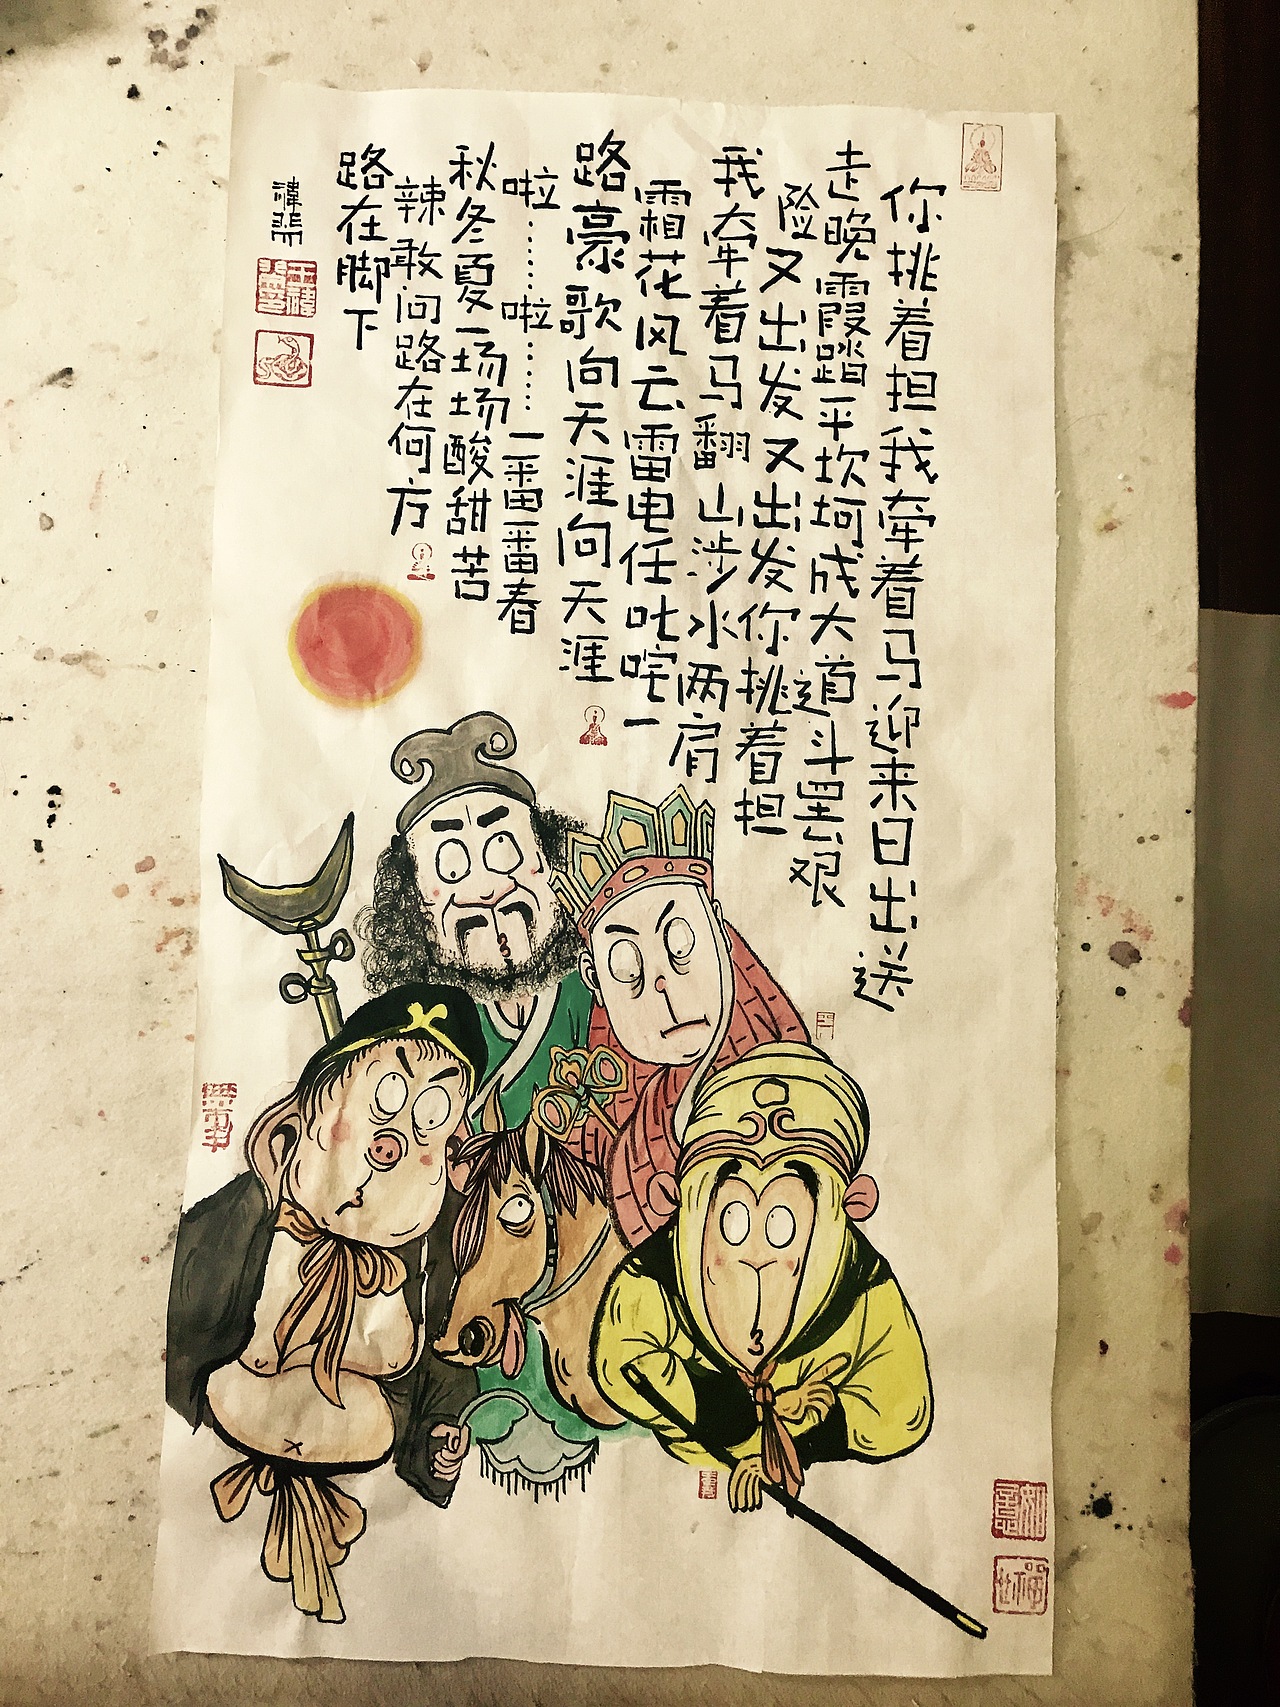 你挑着担我牵着马迎来日出送
走晚霞踏平坎坷成大道斗罢艰
险又出发又出发你挑着担
我牵着马翻山涉水两肩
霜花风云雷电任叱咤一
路豪歌向天涯向天涯
啦……啦……一番番春
秋冬夏一场场酸甜苦
辣敢问路在何方
路在脚下